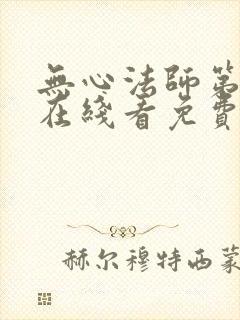 無心法師第
在綫看免費
赫尔穆特西蒙